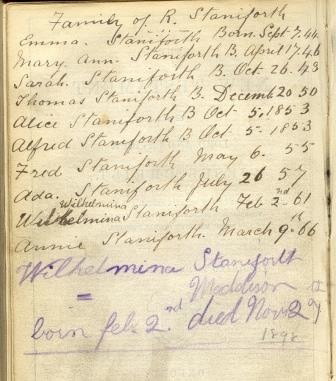 Family of R. Staniforth
Emma. Staniforth Born. Sept 7. 44
Mary. Ann. Staniforth B. April 17. 46
Sarah. Staniforth B. Oct. 26. 43
Thomas Staniforth B. Decemb 20 50
Alice Staniforth B Oct. 5. 1853
Alfred Staniforth B Oct. 5. 1853
Fred Staniforth May 6. 55
Ada. Staniforth July 26 57
Wilhelmina
Wilhelmina Staniforth Feb 2nd 61
Annie Staniforth. March 9th 66
Wilhelmina Staniforth
= Maddison
born feb 2.nd died Nov
1898